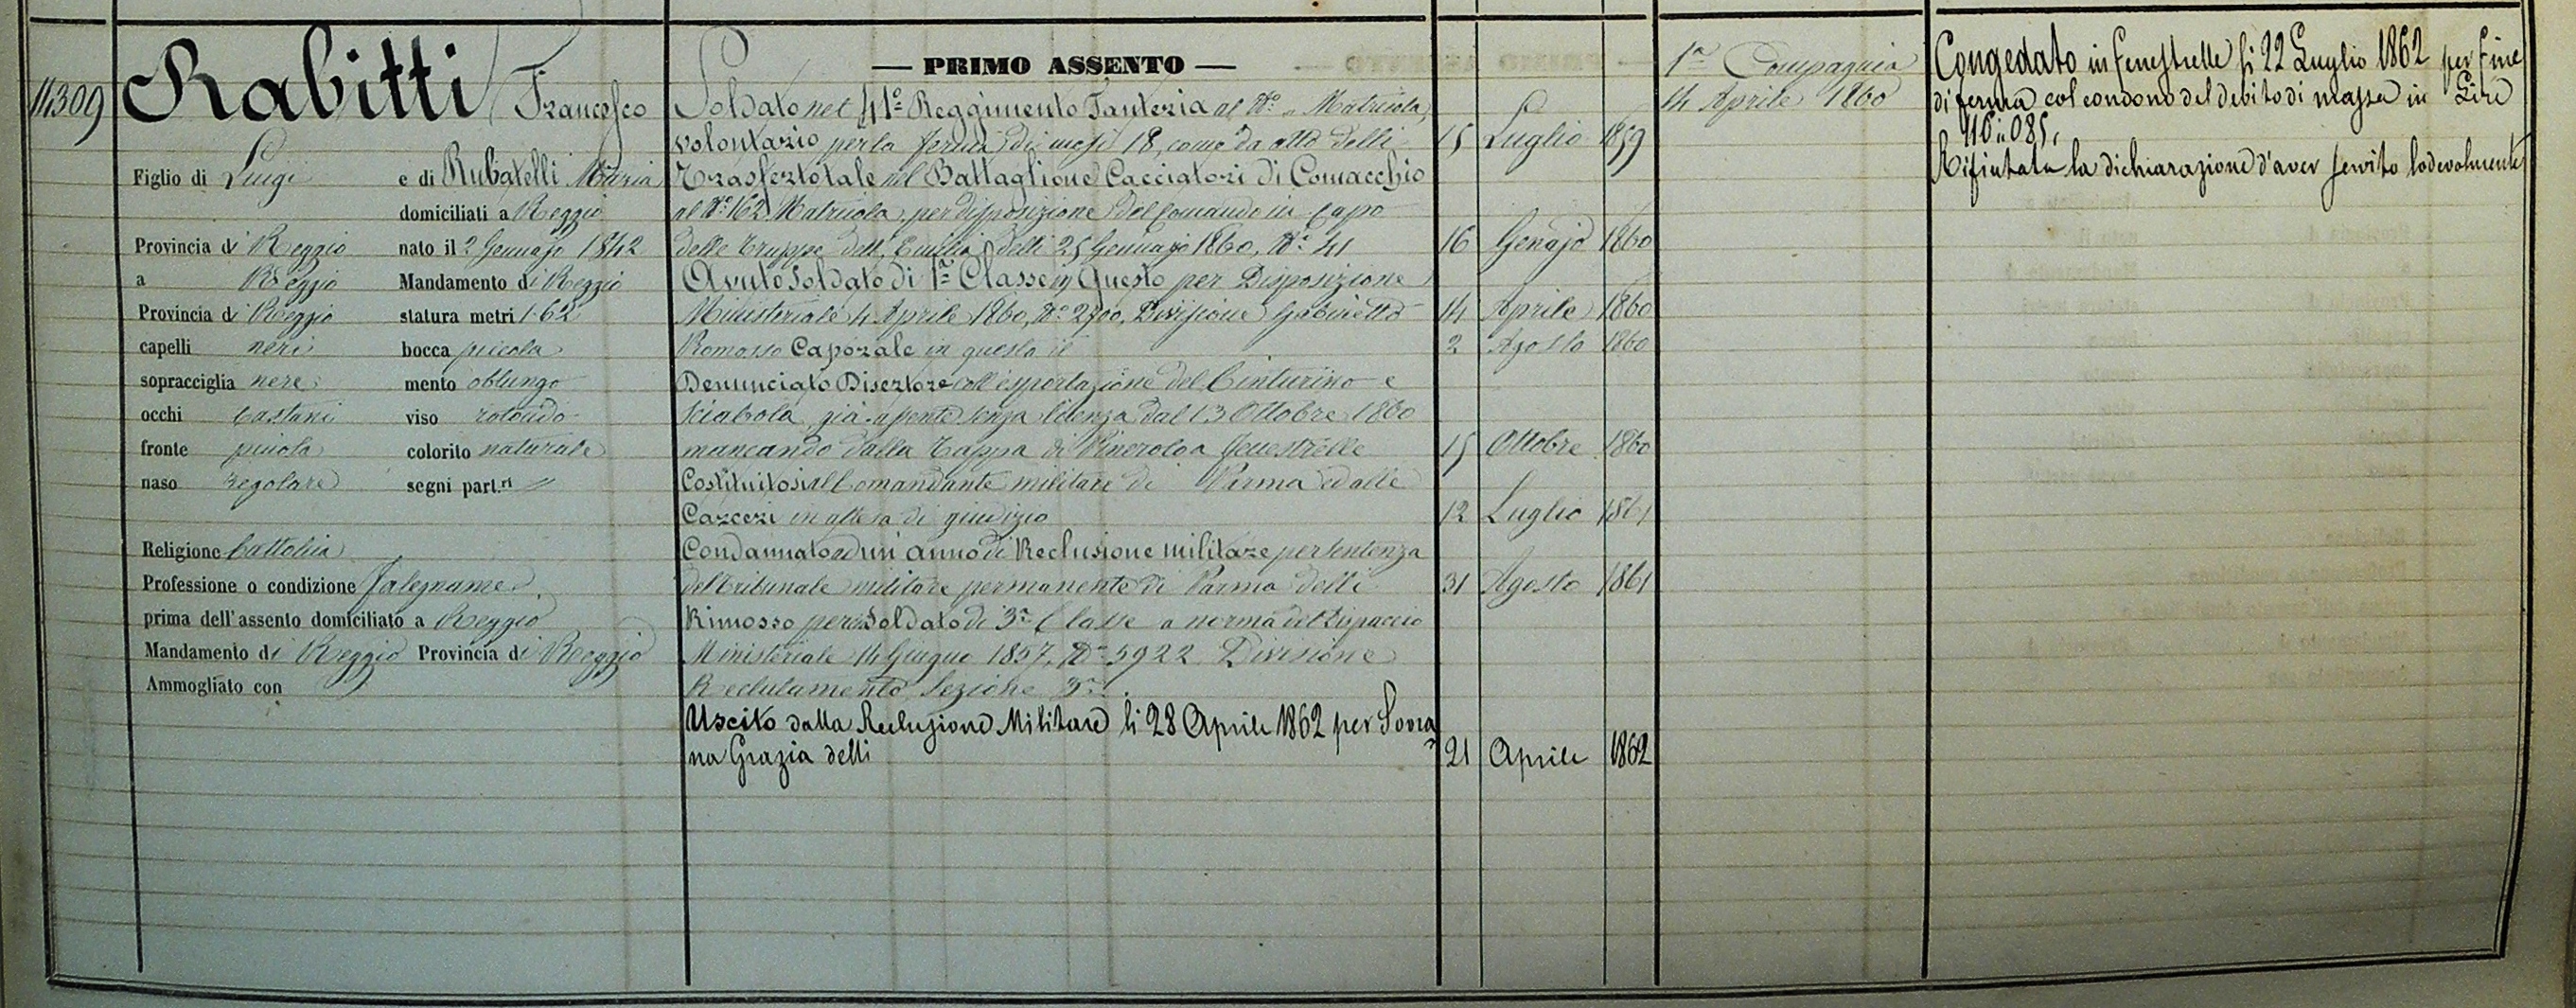 14309
Rabitti Francesco
Figlio di Luigi e di Rubatelli Maria
domiciliati a Reggio
Provincia di Reggio nato il 2 Gennajo 1842
a Reggio Mandamento di Reggio
Provincia di Reggio statura metri 1.62
capelli neri bocca piccola
sopracciglia nere mento oblungo
occhi castani viso rotondo
fronte piccola colorito naturale
naso regolare segni part.ri "
Religione Cattolica
Professione o condizione falegname
prima dell'assento domiciliato a Reggio
Mandamento di Reggio Provincia di Reggio
Ammogliato con
— PRIMO ASSENTO —
Soldato nel 41° Reggimento Fanteria al N° " Matricola,
volontario per la ferma di mesi 18, come da atto delli 15 Luglio 1859
Trasferto tale nel Battaglione Cacciatori di Comacchio
al N° 162 Matricola, per disposizione del Comando in Capo
delle truppe dell'Emilia delli 25 Gennajo 1860, N° 41 16 Genajo 1860
Avuto Soldato di 1ª Classe in Questo per Disposizione
Ministeriale 4 Aprile 1860, N° 2700, Divisione Gabinetto 14 Aprile 1860
Promosso Caporale in questo il 2 Agosto 1860
Denunciato Disertore coll'esportazione del Cinturino e
sciabola, già assente senza licenza dal 13 Ottobre 1860
mancando dalla Tappa di Pinerolo a Fenestrelle 15 Ottobre 1860
Costituitosi al Comandante militare di Parma ed alle
Carceri in attesa di giudizio 12 Luglio 1861
Condannato ad un anno di Reclusione militare per sentenza
del tribunale militare permanente di Parma delli 31 Agosto 1861
Rimosso perciò Soldato di 3ª Classe a norma del Dispaccio
Ministeriale 14 Giugno 1857, N° 5922 Divisione
Reclutamento Sezione 3ª.
Uscito dalla Reclusione Militare li 28 Aprile 1862 per Sovra
na Grazia delli 21 Aprile 1862
1ª Compagnia
14 Aprile 1860
Congedato in Fenestrelle li 22 Luglio 1862 per fine
di ferma col condono del debito di massa in Lire
116 " 085.
Rifiutata la dichiarazione d'aver servito lodevolmente